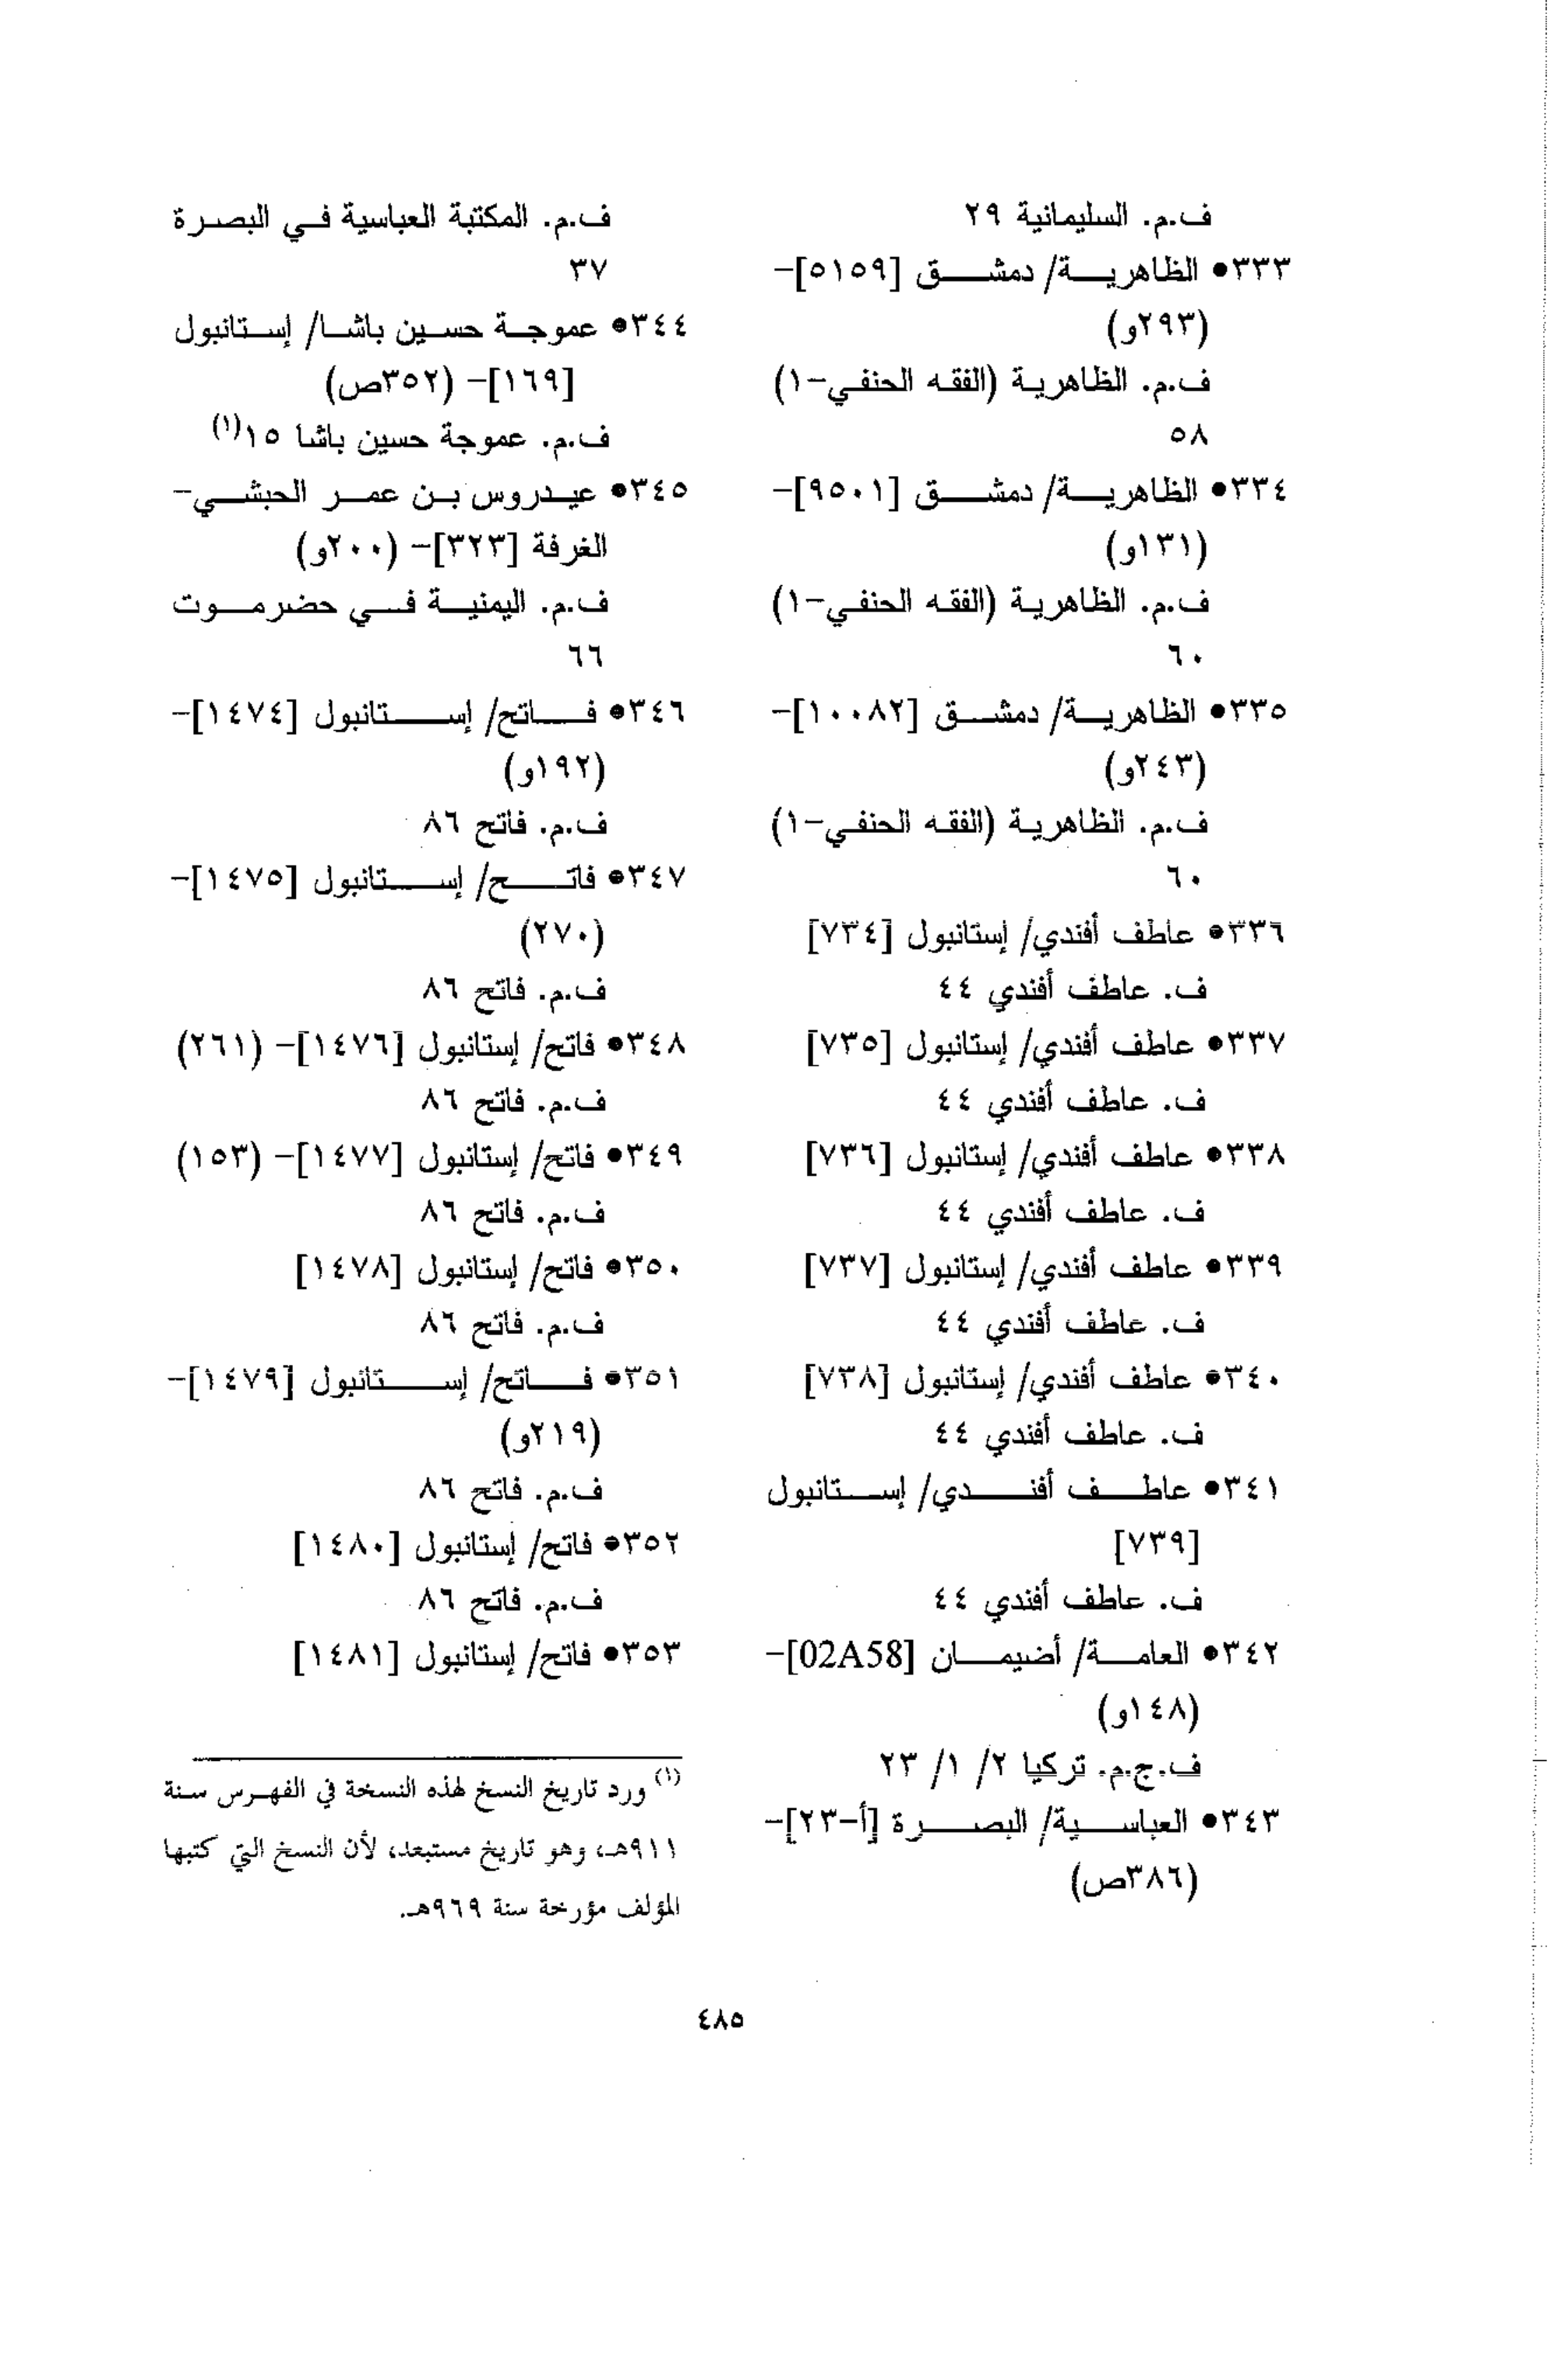 ف.م. السليمانية ٢٩
٣٣٣• الظاهرية/ دمشق [٥١٥٩]-
(٢٩٣و)
ف.م. الظاهرية (الفقه الحنفي-١)
٥٨
٣٣٤• الظاهرية/ دمشق [٩٥٠١]-
(١٣١و)
ف.م. الظاهرية (الفقه الحنفي-١)
٦٠
٣٣٥• الظاهرية/ دمشق [١٠٠٨٢]-
(٢٤٣و)
ف.م. الظاهرية (الفقه الحنفي-١)
٦٠
٣٣٦• عاطف أفندي/ إستانبول [٧٣٤]
ف. عاطف أفندي ٤٤
٣٣٧• عاطف أفندي/ إستانبول [٧٣٥]
ف. عاطف أفندي ٤٤
٣٣٨• عاطف أفندي/ إستانبول [٧٣٦]
ف. عاطف أفندي ٤٤
٣٣٩• عاطف أفندي/ إستانبول [٧٣٧]
ف. عاطف أفندي ٤٤
٣٤٠• عاطف أفندي/ إستانبول [٧٣٨]
ف. عاطف أفندي ٤٤
٣٤١• عاطف أفندي/ إستانبول
[٧٣٩]
ف. عاطف أفندي ٤٤
٣٤٢• العامة/ أضيمان [02A58]-
(١٤٨و)
ف.ج.م. تركيا ٢/ ١/ ٢٣
٣٤٣• العباسية/ البصرة [أ-٢٣]-
(٣٨٦ص)
ف.م. المكتبة العباسية في البصرة
٣٧
٣٤٤• عموجة حسين باشا/ إستانبول
[١٦٩]- (٣٥٢ص)
ف.م. عموجة حسين باشا ١٥(١)
٣٤٥• عيدروس بن عمر الحبشي-
الغرفة [٣٢٣]- (٢٠٠و)
ف.م. اليمنية في حضرموت
٦٦
٣٤٦• فاتح/ إستانبول [١٤٧٤]-
(١٩٢و)
ف.م. فاتح ٨٦
٣٤٧• فاتح/ إستانبول [١٤٧٥]-
(٢٧٠)
ف.م. فاتح ٨٦
٣٤٨• فاتح/ إستانبول [١٤٧٦]- (٢٦١)
ف.م. فاتح ٨٦
٣٤٩• فاتح/ إستانبول [١٤٧٧]- (١٥٣)
ف.م. فاتح ٨٦
٣٥٠• فاتح/ إستانبول [١٤٧٨]
ف.م. فاتح ٨٦
٣٥١• فاتح/ إستانبول [١٤٧٩]-
(٢١٩و)
ف.م. فاتح ٨٦
٣٥٢• فاتح/ إستانبول [١٤٨٠]
ف.م. فاتح ٨٦
٣٥٣• فاتح/ إستانبول [١٤٨١]
(١) ورد تاريخ النسخ لهذه النسخة في الفهرس سنة
٩١١هـ، وهو تاريخ مستبعد، لأن النسخ التي كتبها
المؤلف مؤرخة سنة ٩٦٩هـ.
٤٨٥